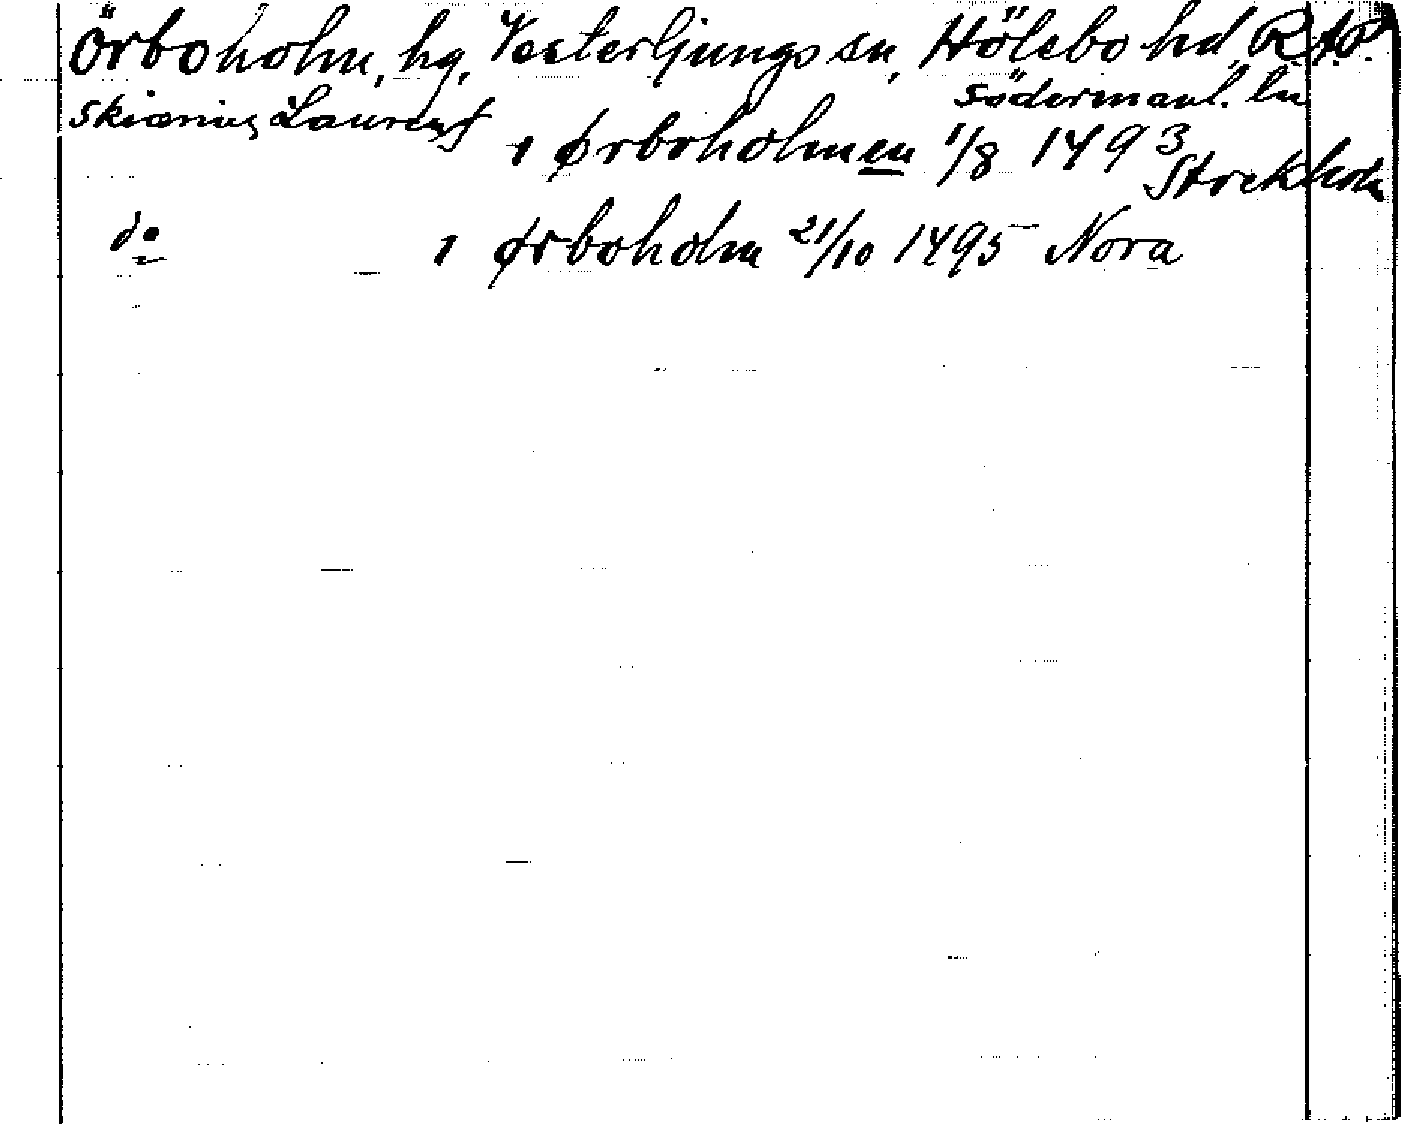 Örboholm, hg, Vesterljungs sn, Hölebo hd, R.A.P.
Södermanl. ln
Laurens
ı Ørboholmen 1/8 1493
Stockholm
do ı Ørboholm 21/10 1495 Nora